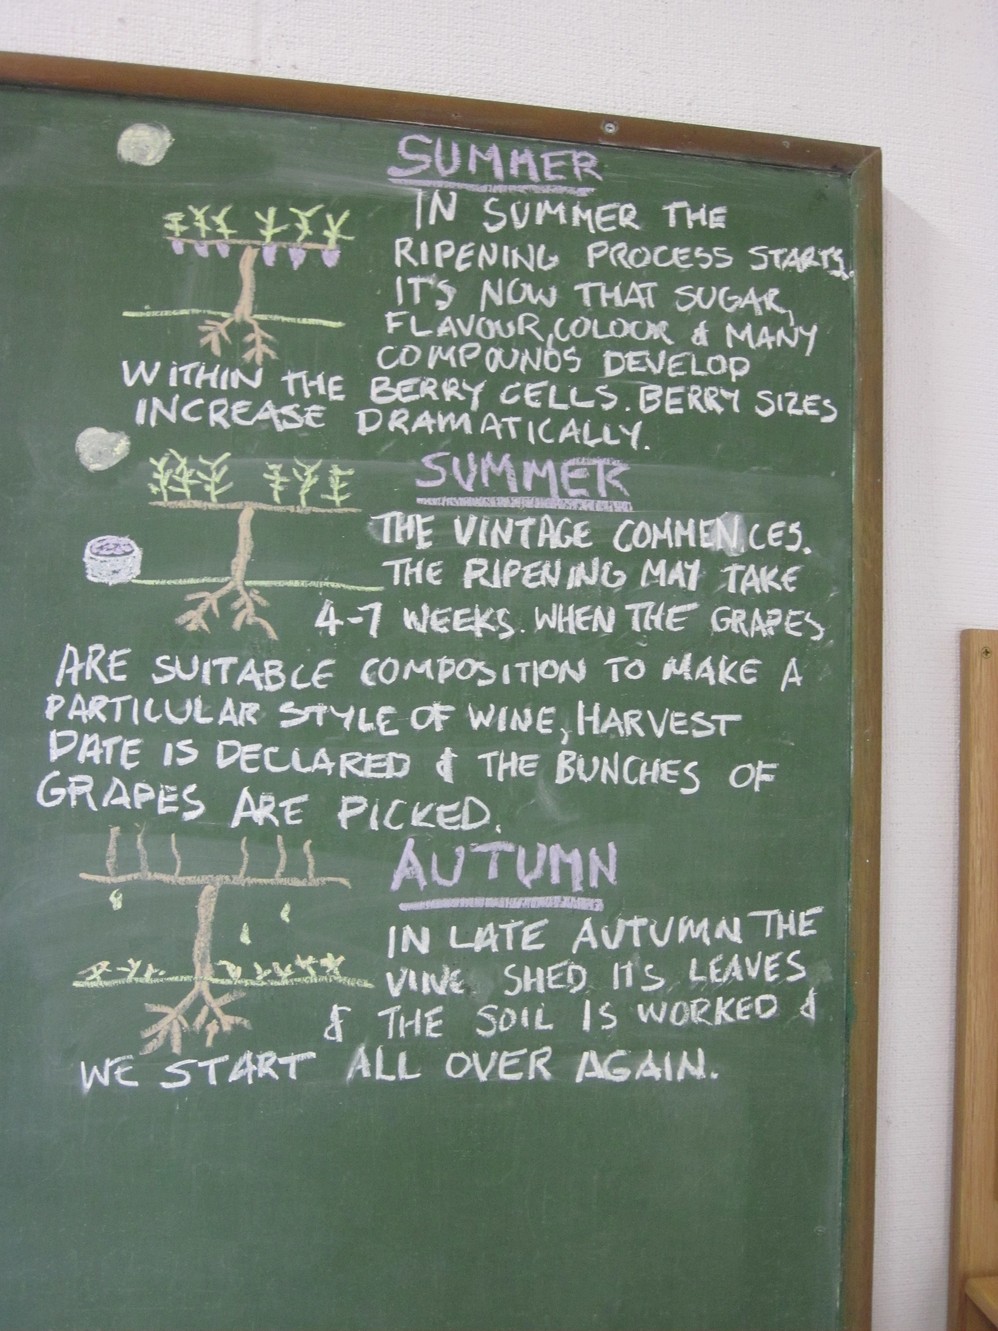 SUMMER
IN SUMMER THE
RIPENING PROCESS STARTS.
IT'S NOW THAT SUGAR,
FLAVOUR, COLOUR & MANY
COMPOUNDS DEVELOP
WITHIN THE BERRY CELLS. BERRY SIZES
INCREASE DRAMATICALLY.
SUMMER
THE VINTAGE COMMENCES.
THE RIPENING MAY TAKE
4-7 WEEKS. WHEN THE GRAPES
ARE SUITABLE COMPOSITION TO MAKE A
PARTICULAR STYLE OF WINE, HARVEST
DATE IS DECLARED & THE BUNCHES OF
GRAPES ARE PICKED.
AUTUMN
IN LATE AUTUMN THE
VINE SHED ITS LEAVES
& THE SOIL IS WORKED &
WE START ALL OVER AGAIN.